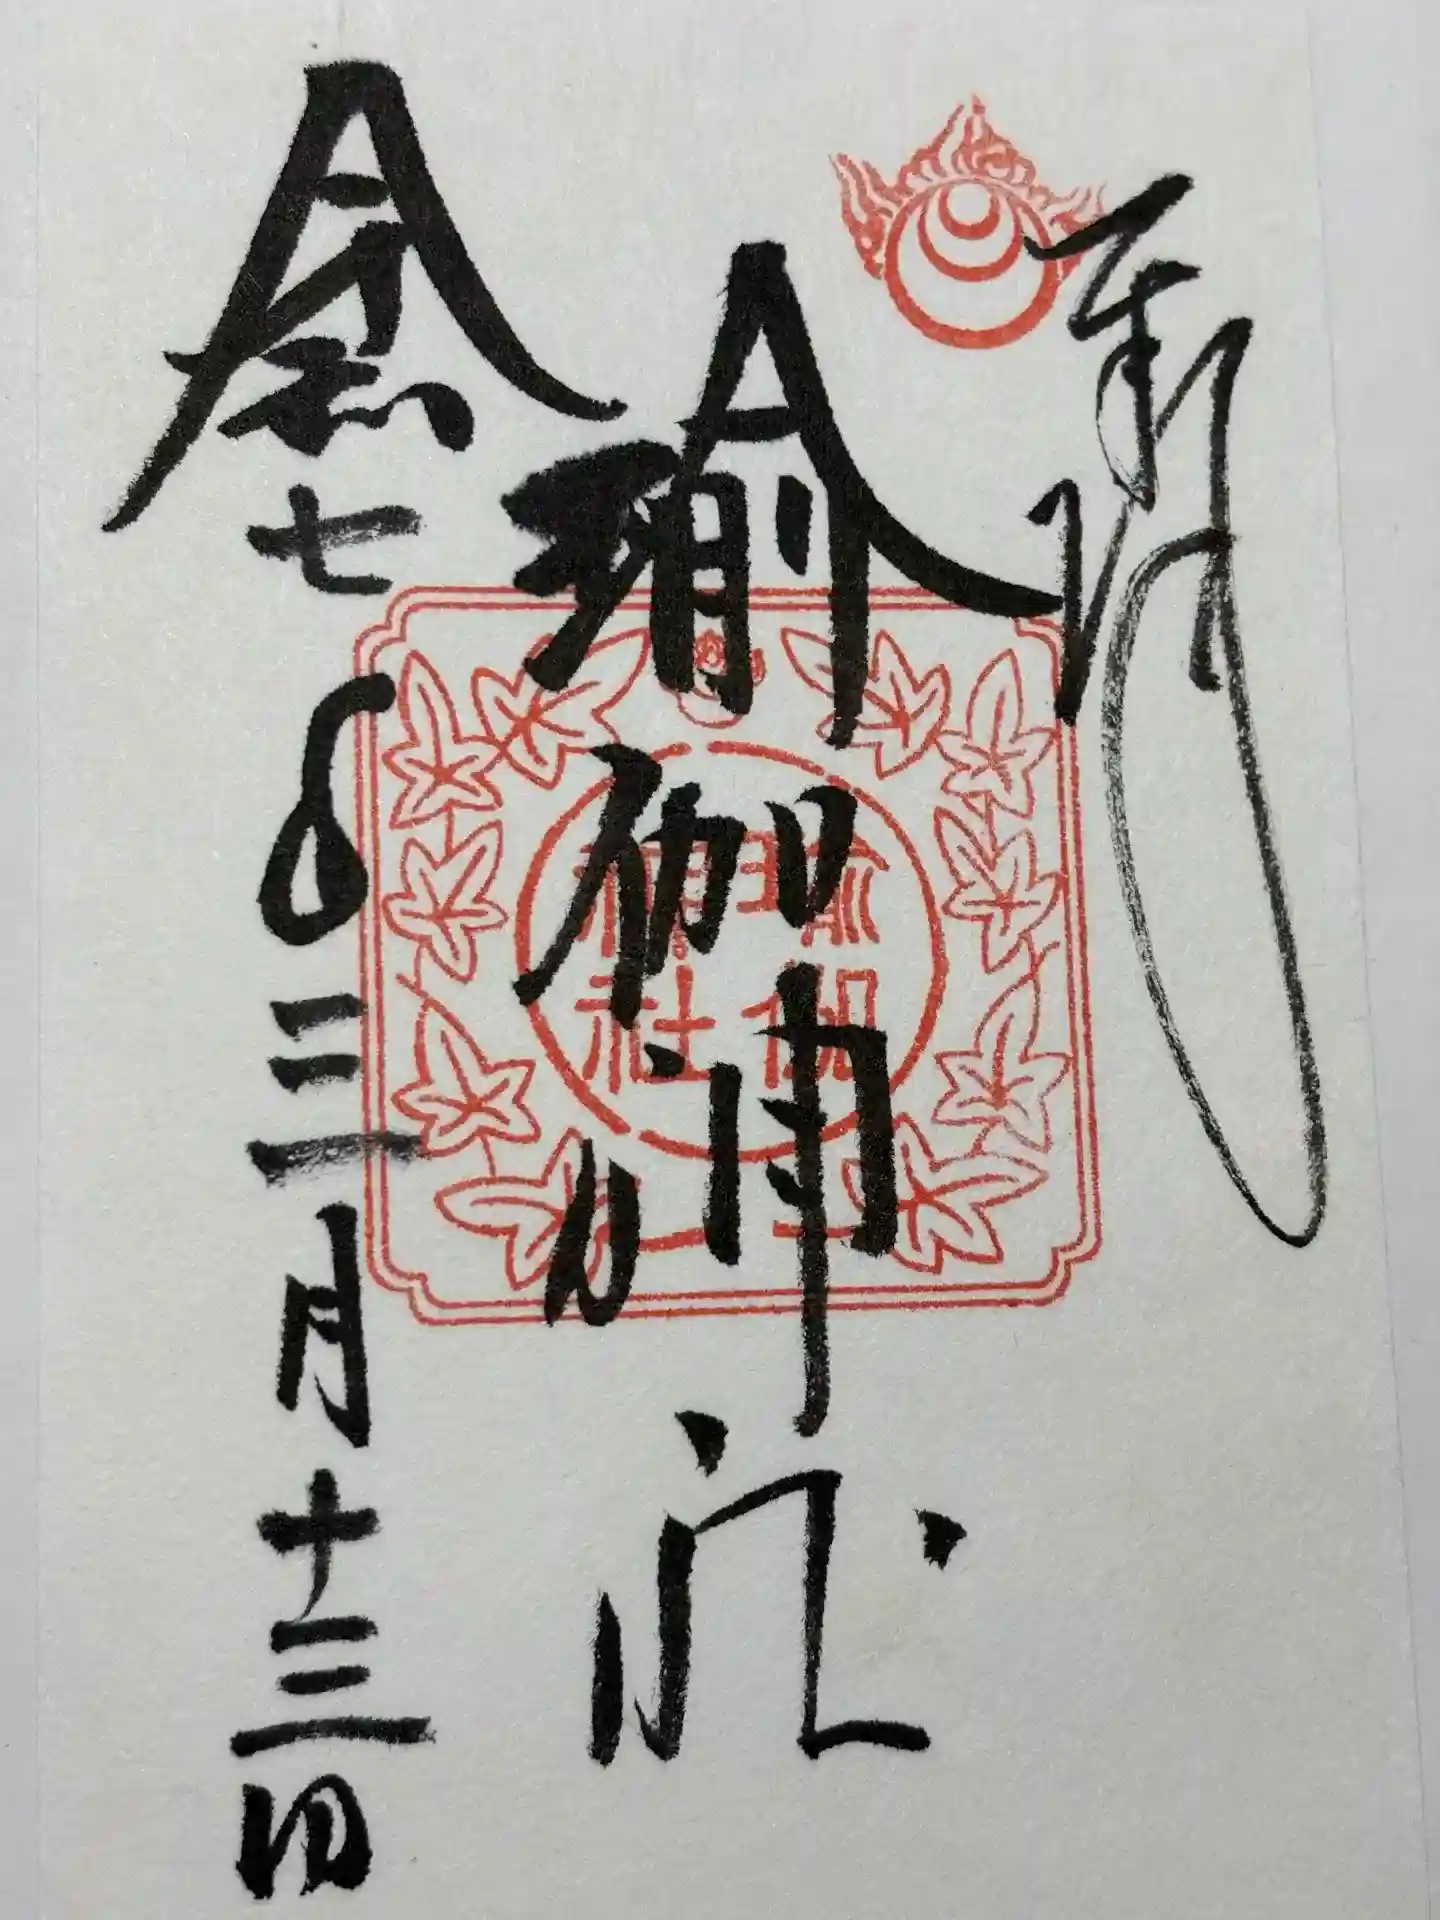 奉拝
瑜伽神社
令和七年三月十三日
瑜伽
神社